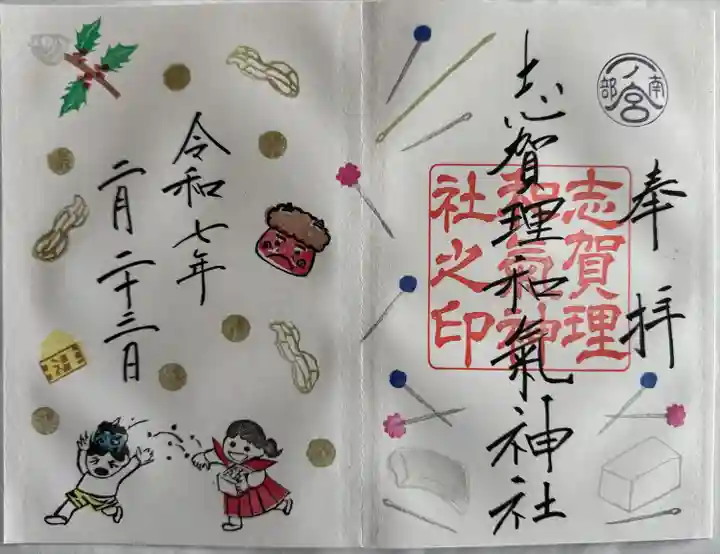 南部
一ノ宮
奉拝
志賀理和氣神社
志賀理
和氣神
社之印
令和七年
二月二十三日